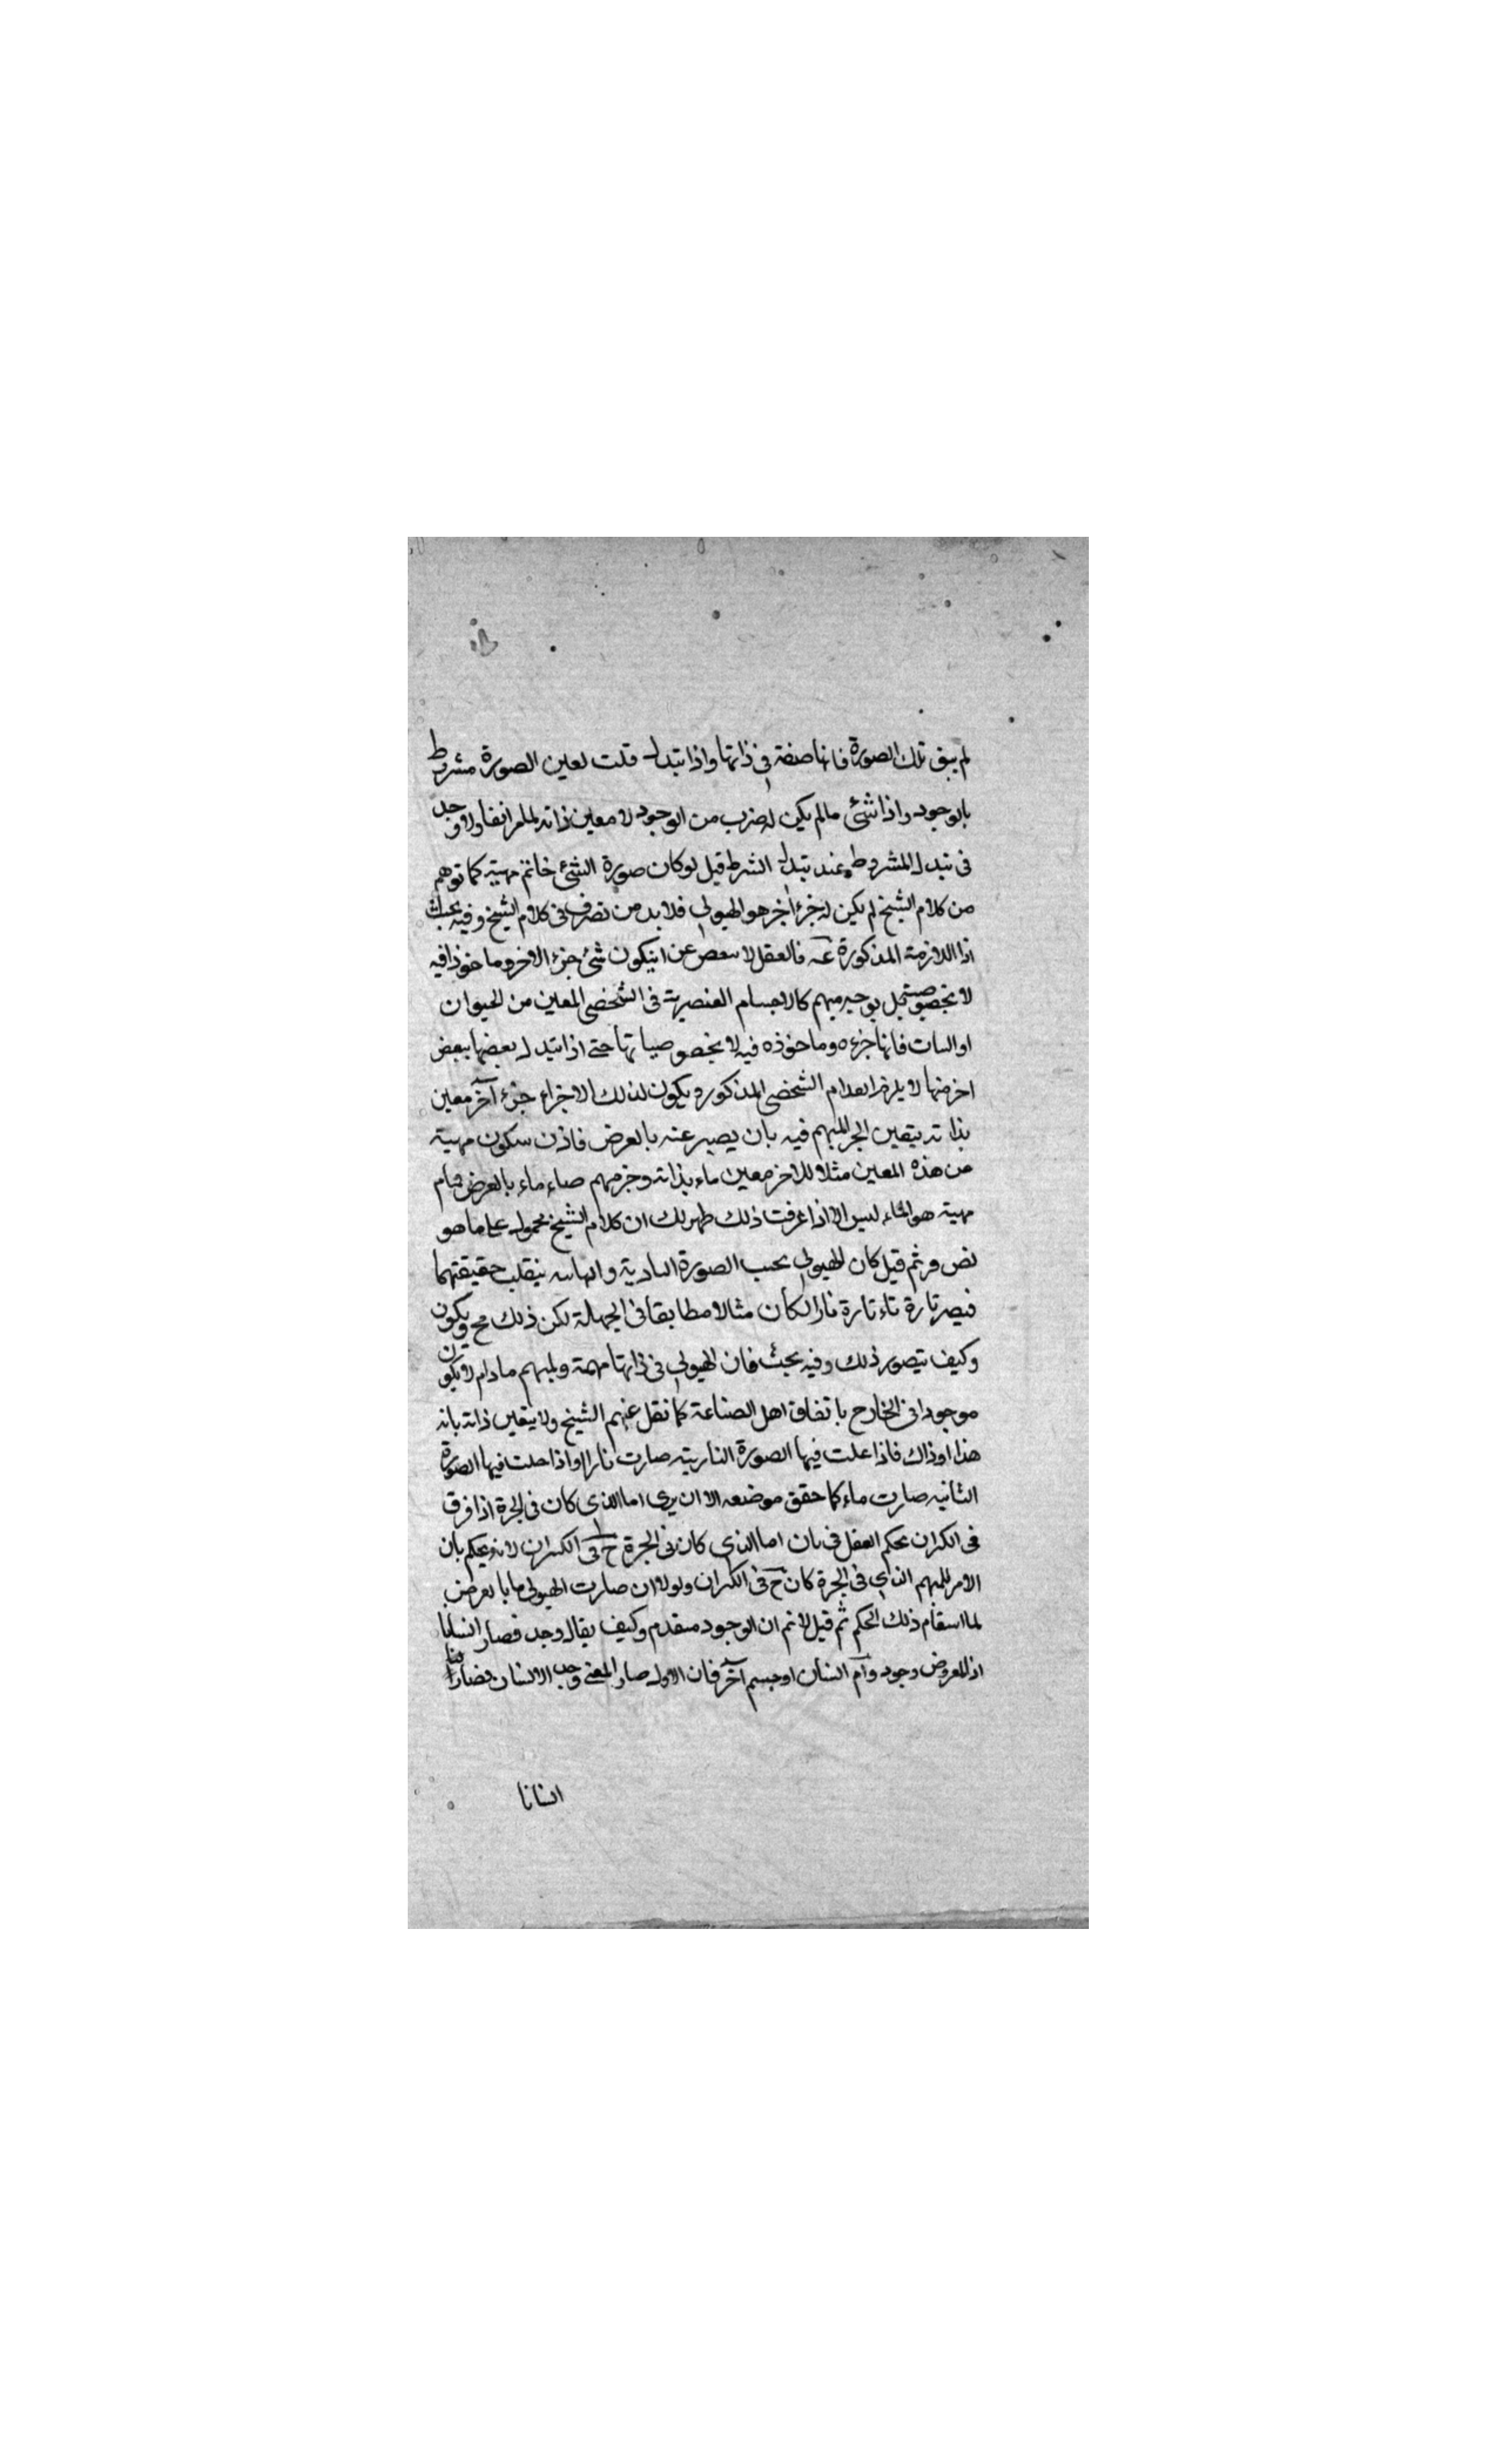 لم يبق تلك الصورة فانها صفة في ذاتها واذا تبدل قلت لعين الصورة مشروط
بالوجود واذا شئ مالم يكن له ضرب من الوجود لا معين ذاته انفا ولاوجد
فى تبدل المشروط عند تبدل الشرط قيل لو كان صورة الشئ خاتم مهيته كما توهم
من كلام الشيخ لم يكن له جزء اخر هو الهيولى فلا بد من تصرف فى كلام الشيخ وفيه بحث
اذا اللازمة المذكورة فالعقل لا عن انيكون شئ جزء الاخر وماخوذا فيه
لا بخصوصيته بل بوجه مبهم كالاجسام العنصرية فى الشخص المعين من الحيوان
او النبات فانها جزءه وماخوذه فيه لا بخصوصياتها حتى اذا تبدل بعضها ببعض
اخر منها لا يلزم انعدام الشخص المذكور ويكون لذلك الاجزاء جزء آخر معين
بذاته يتعين الجزء المبهم فيه بان يصير عنه بالعرض فاذن سكون مهية
من هذه المعين مثلا للاخر معين ماء بذاته وجز مبهم صاء ماء بالعرض تمام
مهيته هو الماء ليس الا اذا عرفت ذلك ظهر لك ان كلام الشيخ محمول على ما هو
نص ثم قيل كان الهيولى بحسب الصورة النارية والمائيه ينقلب حقيقتهما
فيصر تارة ماء تارة نارا لكان مثالا مطابقا فى الجملة لكن ذلك مح ويكون
وكيف يتصور ذلك وفيه بحث فان الهيولى فى ذاتها مبهمة والمبهم مادام لا يكون
موجودا فى الخارج باتفاق اهل الصناعة كما نقل عنهم الشيخ ولا يتعين ذاته بانه
هذا او ذاك فاذا حلت فيها الصورة النارية صارت نارا واذا حلت فيها الصورة
الثانيه صارت ماء كما حقق موضعه الا ان يرى اما الذى كان فى الجرة اذا فرق
فى الكزان يحكم العقل فى بان اما الذى كان فى الجرة ح فى الكزان لا نه يحكم بان
الامر المبهم الذى فى الجرة كان ح فى الكزان ولولا ان صارت الهيولى ما بالعرض
لما استقام ذلك الحكم ثم قيل لا نم ان الوجود متقدم وكيف يقال وجد فصار انسانا
اذ للعروض وجود وآم انسان او جسم آخر فان الاول صار المعنى وجب الانسان فصار
انسانا